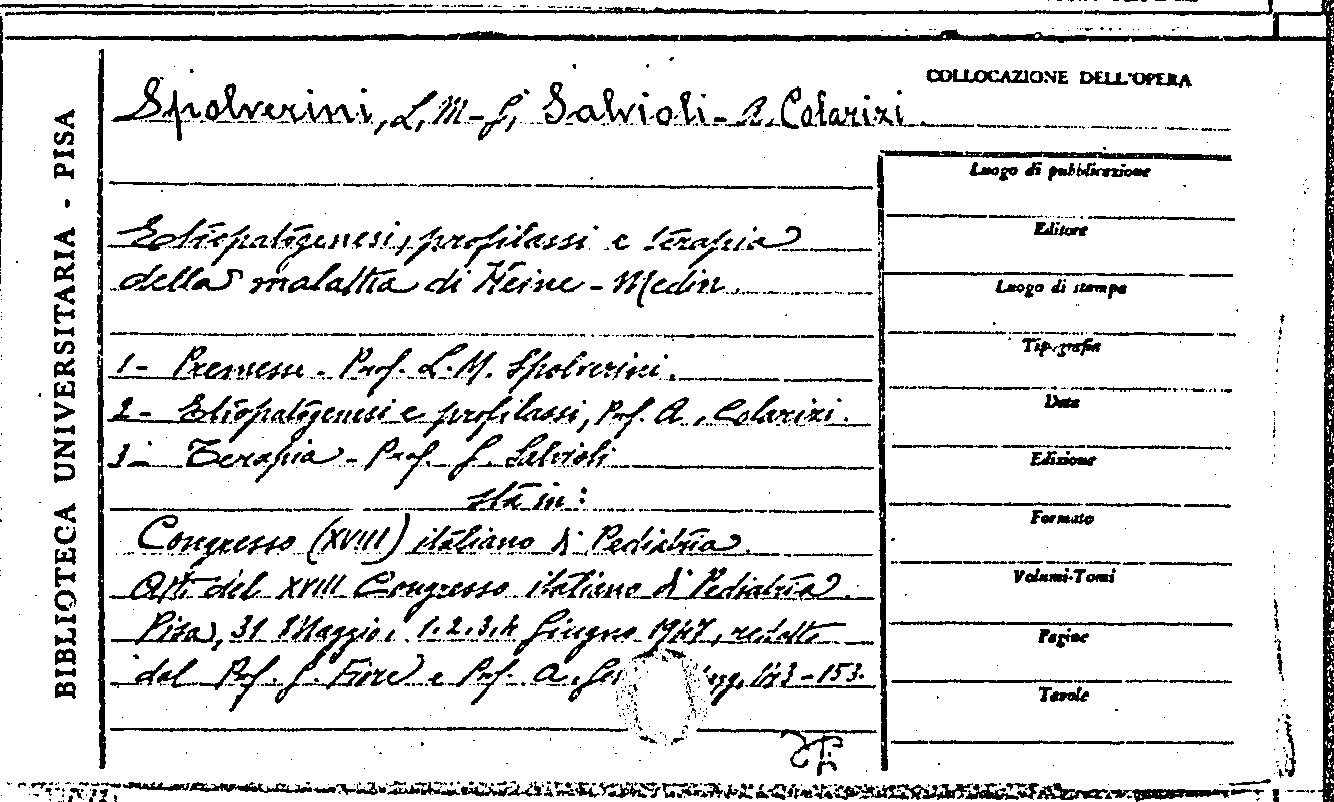 BIBLIOTECA UNIVERSITARIA - PISA
COLLOCAZIONE DELL'OPERA
Spolverini, L. M - G. Salvioli - A. Colarizi.
Etiopatogenesi, profilassi e terapia
della malattia di Heine - Medin.
1 - Premesse - Prof. L. M. Spolverini.
2 - Etiopatogenesi e profilassi, Prof. A. Colarizi.
3 - Terapia - Prof. G. Salvioli
sta in:
Congresso (XVIII) italiano di Pediatria.
Atti del XVIII Congresso italiano di Pediatria.
Pisa, 31 Maggio, 1.2.3.4 Giugno 1947, redatto
dal Prof. G. Fiore e Prof. A. 143 - 153.
Luogo di pubblicazione
Editore
Luogo di stampa
Tipografia
Data
Edizione
Formato
Volumi-Tomi
Pagine
Tavole